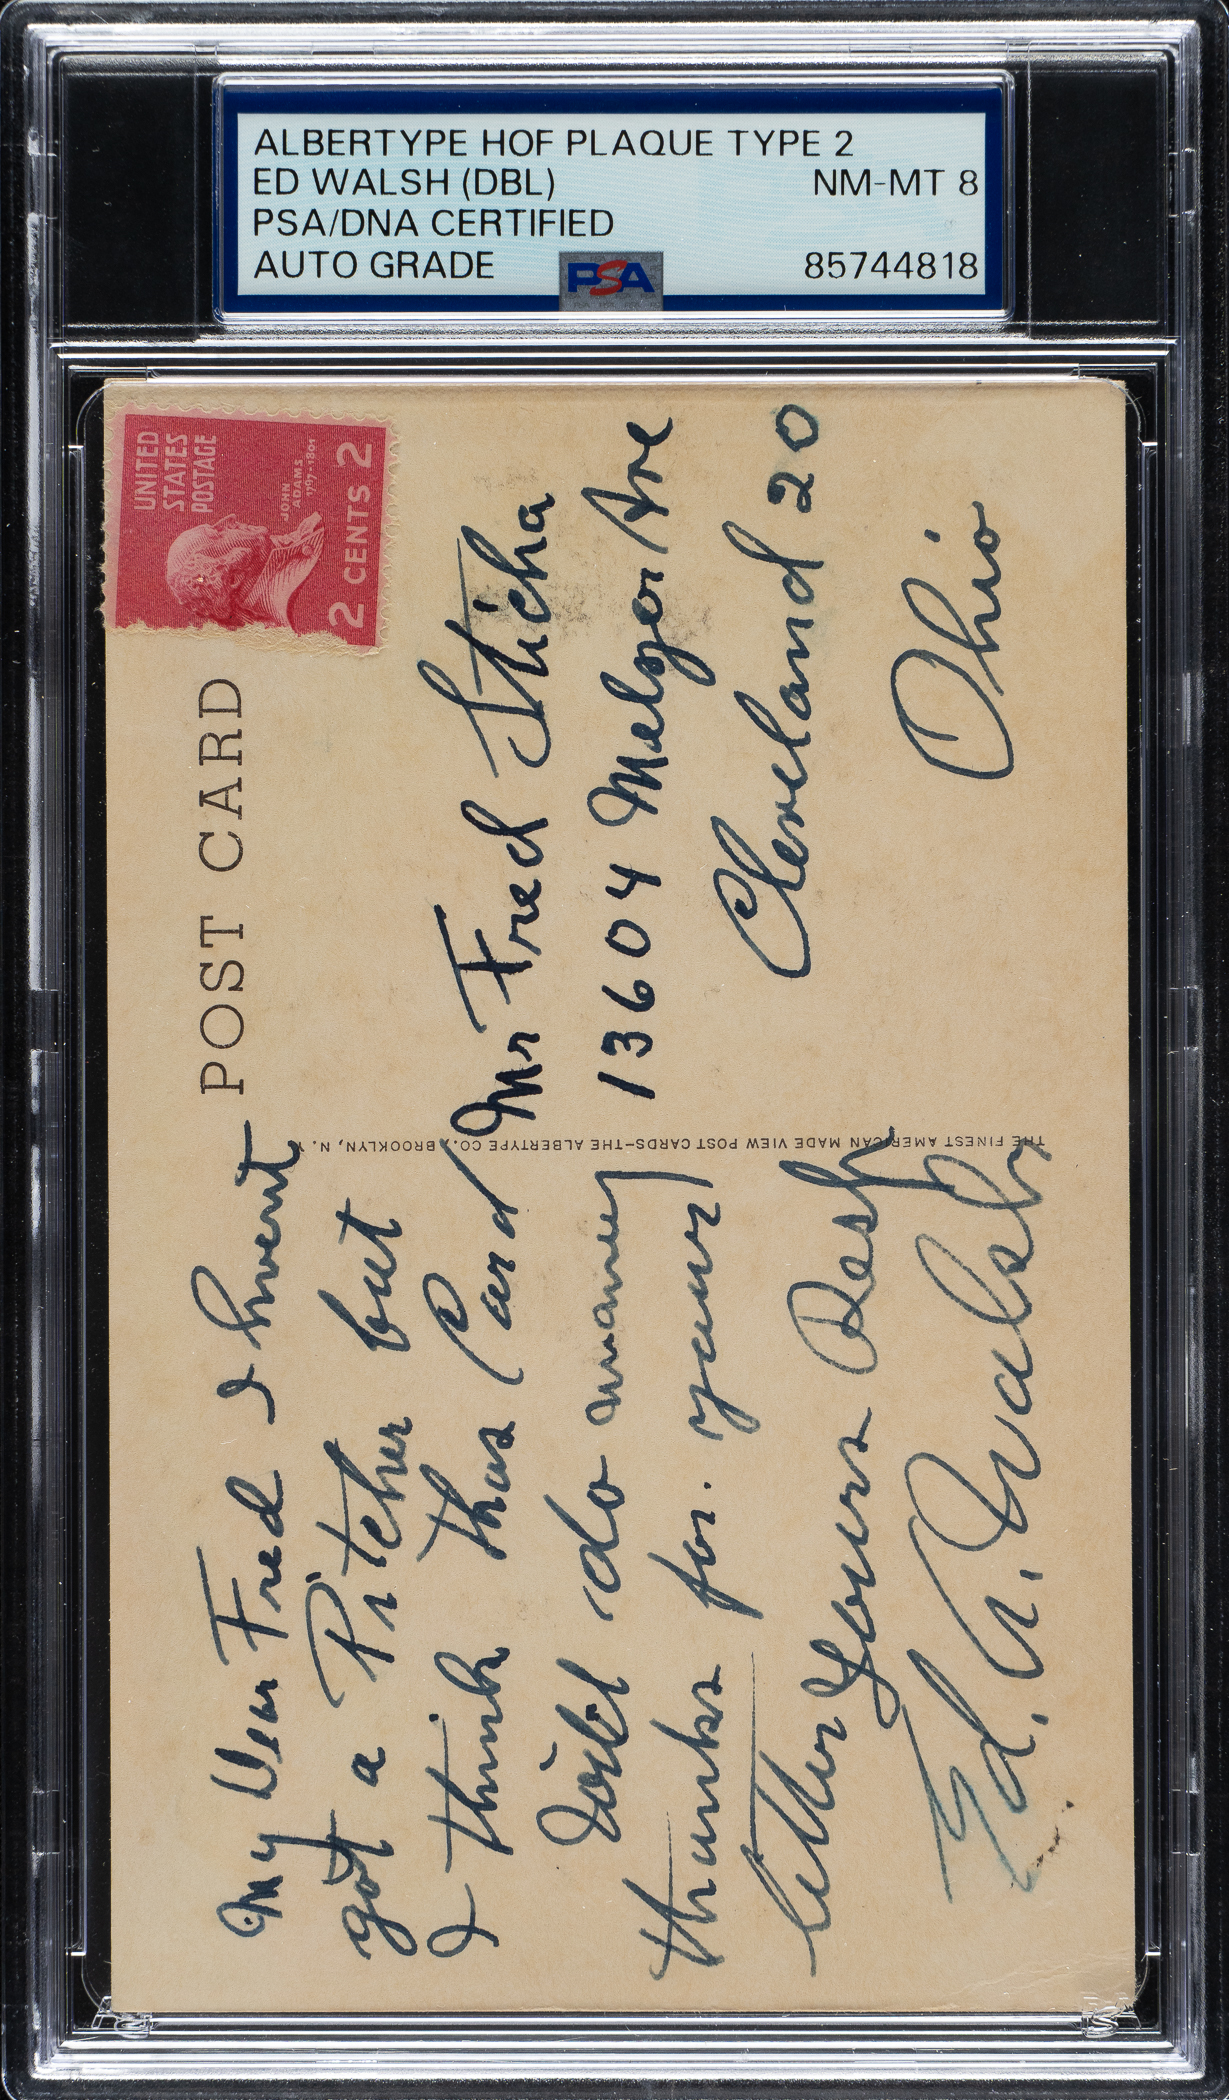 ALBERTYPE HOF PLAQUE TYPE 2
ED WALSH (DBL) NM-MT 8
PSA/DNA CERTIFIED
AUTO GRADE PSA 85744818
UNITED
STATES
POSTAGE
JOHN
ADAMS
1797-1801
2 CENTS 2
POST CARD
My Dear Fred I havent
got a Pitcher but
I think thas Card
will do maney
thanks for. your
letter Yours Resp
Ed. A. Walsh
THE FINEST AMERICAN MADE VIEW POST CARDS-THE ALBERTYPE CO., BROOKLYN, N.
Mr Fred Sticha
13604 Melzer Ave
Cleveland 20
Ohio